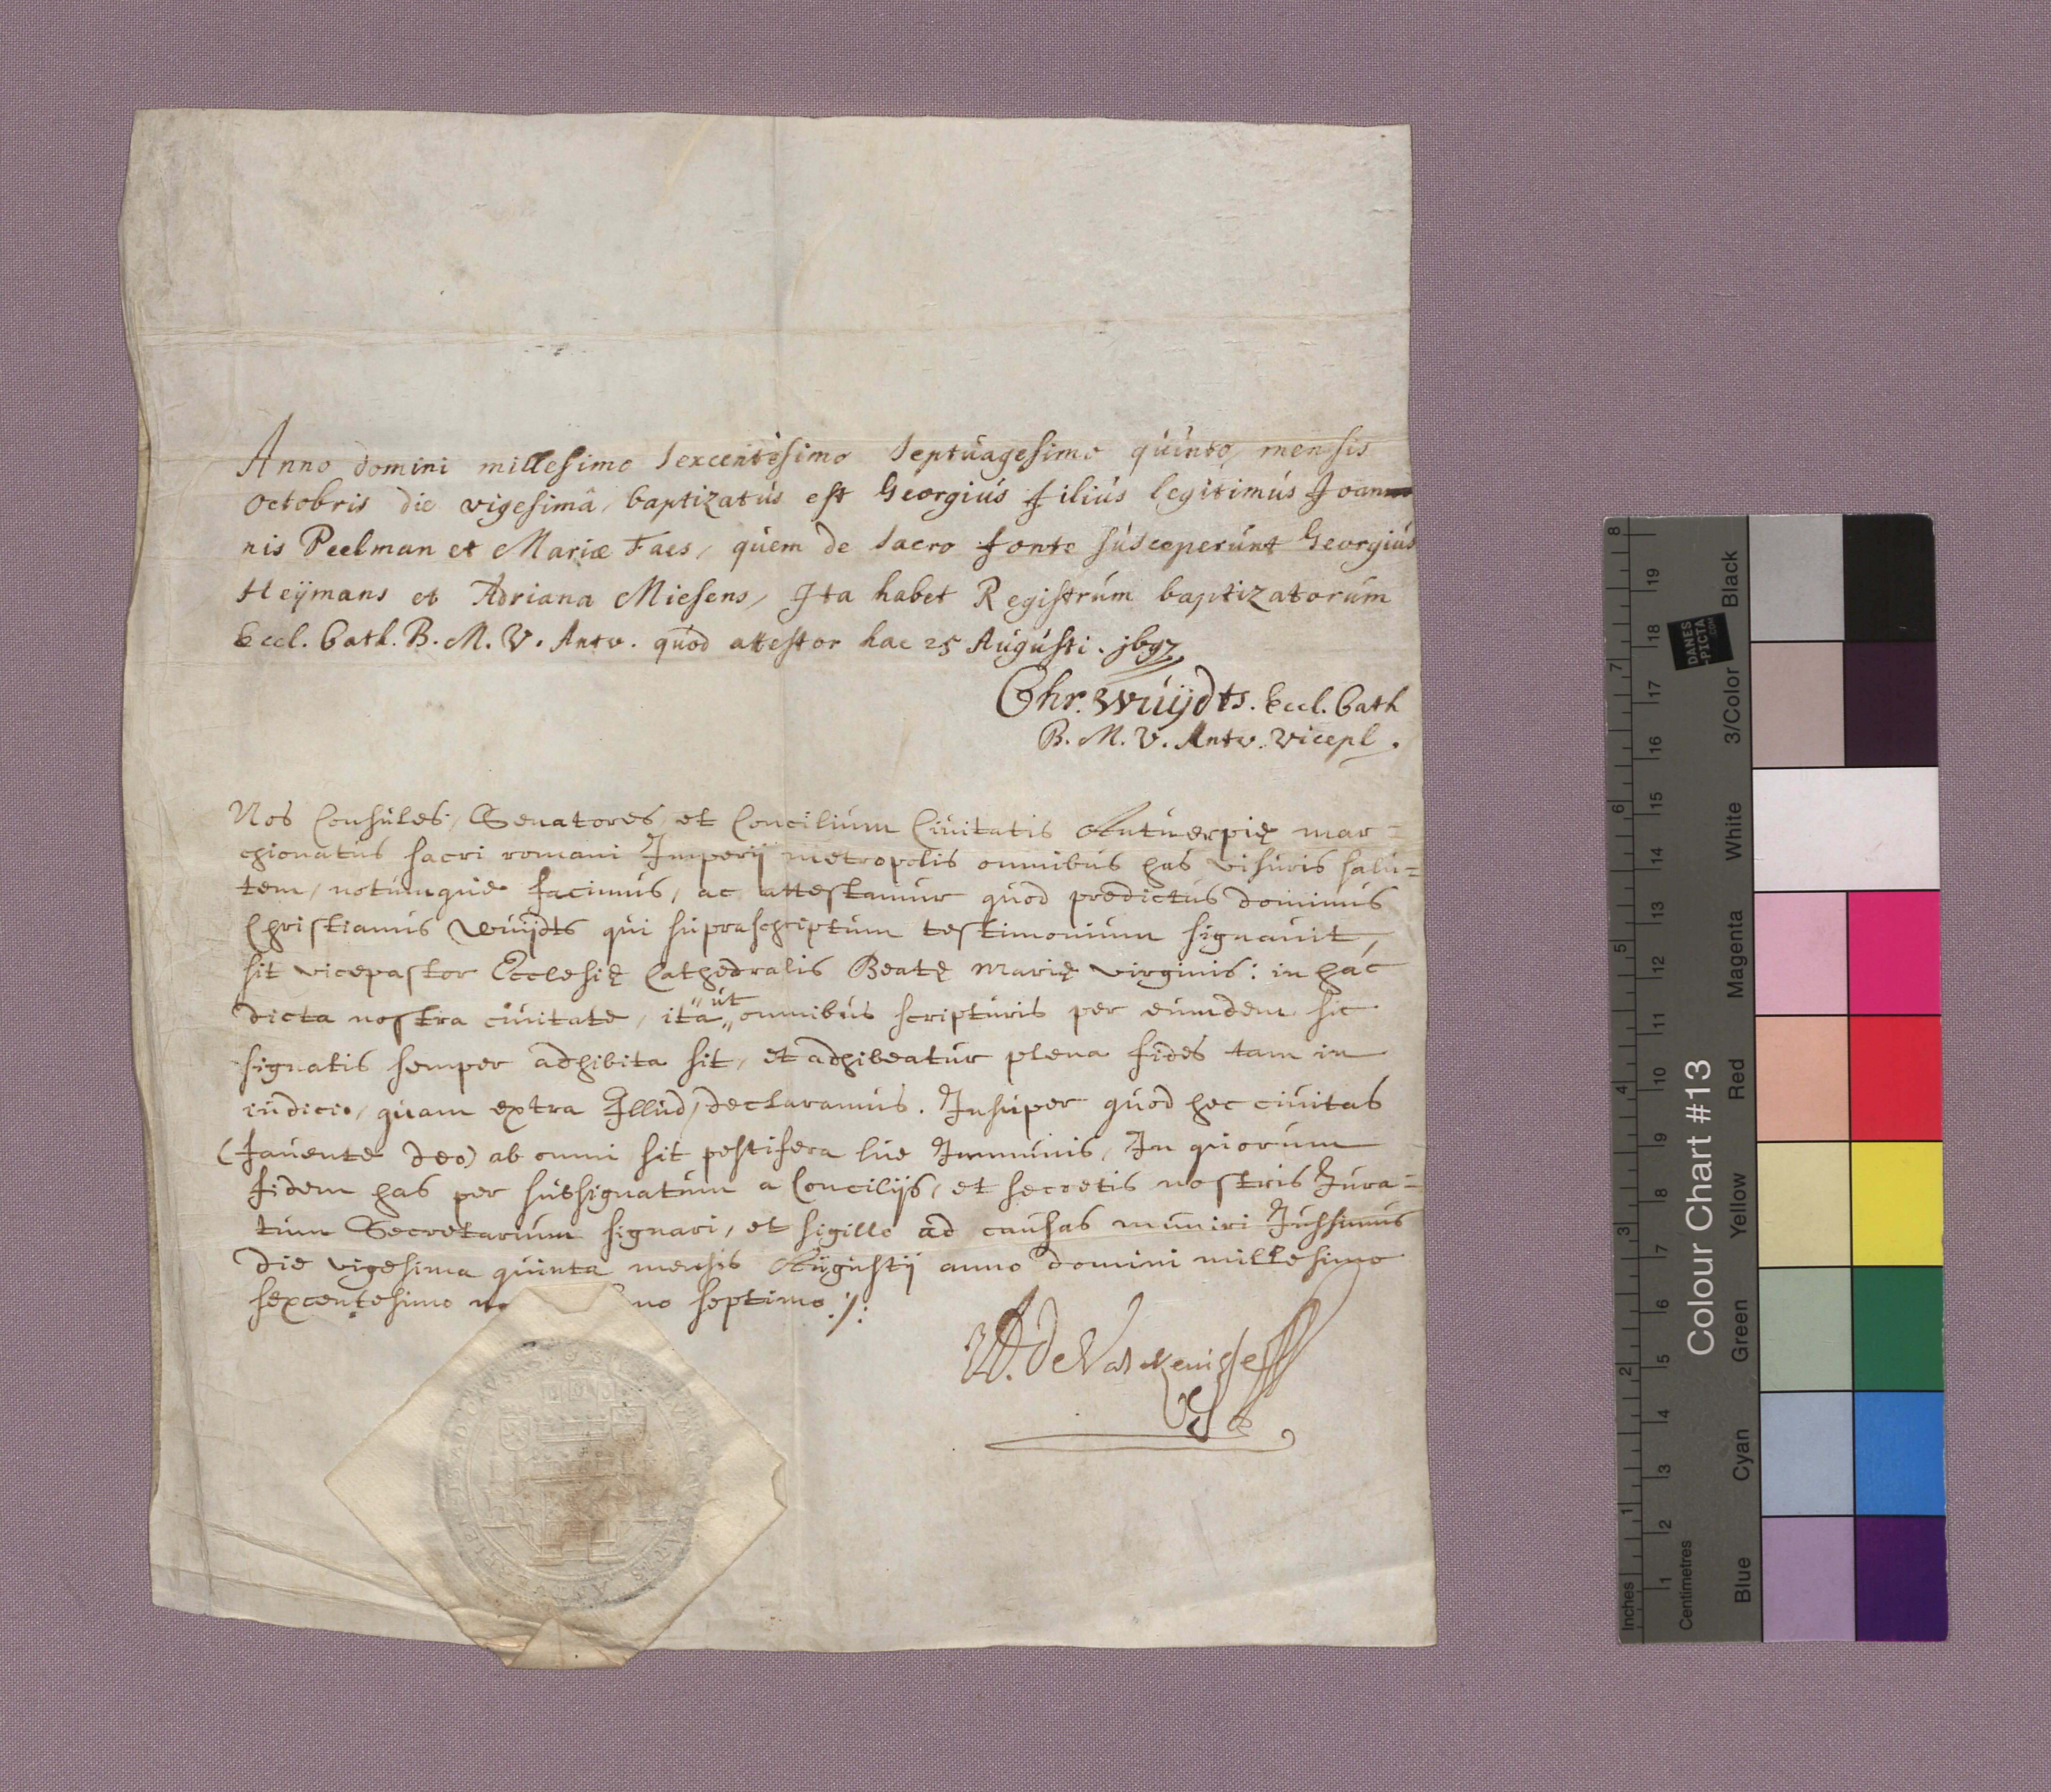 Anno domini millesimo sexcentesimo septuagesimo quinto, mensis
octobris die vigesimâ, baptizatus est Georgius filius legitimus Joan
nis Peelman et Mariæ Faes, quem de sacro fonte susceperunt Georgius
Heÿmans et Adriana Miesens, Ita habet Registrum baptizatorum
Eccl. Cath. B. M. V. Antv. quod attestor hac 25 Augusti. j697
Chr. Wuÿdts. Eccl. Cath
B. M. V. Antv. vicepl.
Nos Consules, Senatores, et Concilium Civitatis Antuerpię mar=
chionatus sacri romani Imperÿ metropolis omnibus has visuris salu=
tem, notumque facimus, ac attestamur quod predictus dominus
Christianus Wuÿdts qui supraschriptum testimonium signauit,
sit vicepastor Ecclesię Cathedralis Beatę Marię virginis: in hac
dicta nostra ciuitate, ita ut omnibus scripturis per eumdem sic
signatis semper adhibita sit, et adhibeatur plena fides tam in
iudicio, quam extra Illud, declaramus. Insuper quod hec ciuitas
(fauente deo) ab omni sit pestifera lue Immunis, In quorum
fidem has per subsignatum a Concilÿs, et secretis nostris Jura=
tum Secretarium signari, et sigillo ad causas muniri Jussimus
die vigesima quinta mensis Augustÿ anno domini millesimo
sexcentesimo no septimo
Colour Chart #13
Inches
Centimetres
Blue
Cyan
Green
Yellow
Red
Magenta
White
3/Color
Black
DANES
-PICTA
.COM
1 2 3 4 5 6 7 8
1 2 3 4 5 6 7 8 9 10 11 12 13 14 15 16 17 18 19